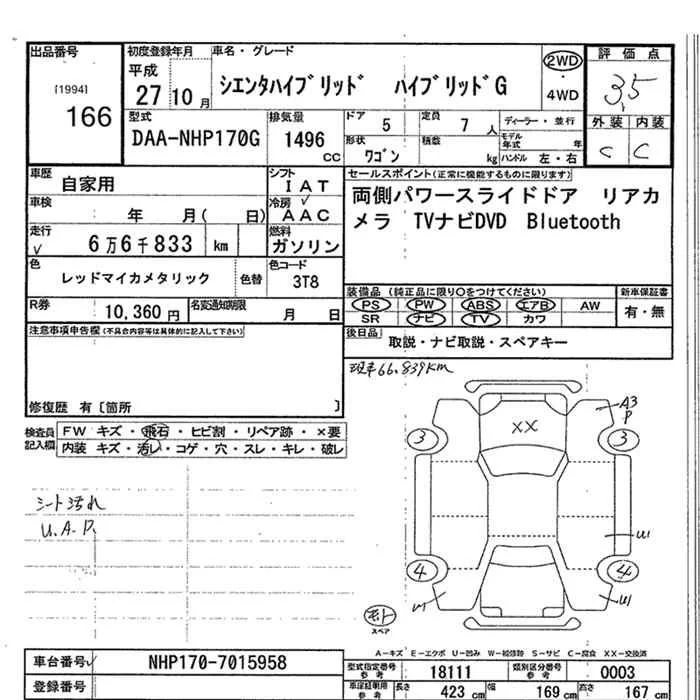 出品番号
[1994]
166
初度登録年月
平成
27 10 月
車名・グレード
シエンタハイブリッド ハイブリッドG
2WD
・
4WD
評価点
3.5
外装 内装
C C
型式
DAA-NHP170G
排気量
1496
CC
ドア 5
定員 7 人
形状
ワゴン
積載
kg
ディーラー・並行
モデル
年式 年
ハンドル 左・右
車歴
自家用
シフト
IAT
車検
年 月( 日)
冷房 √
AAC
走行
√ 6万6千833 km
燃料
ガソリン
色
レッドマイカメタリック
色替
色コード
3T8
R券
10,360 円
名変通知期限
月 日
セールスポイント(正常に機能するものに限ります)
両側パワースライドドア リアカ
メラ TVナビDVD Bluetooth
装備品 (純正品に限り○をつけてください)
PS PW ABS エアB AW
SR ナビ TV カワ
新車保証書
有・無
後日品
取説・ナビ取説・スペアキー
注意事項申告欄(不具合内容等は具体的に記入して下さい)
修復歴 有〔箇所 〕
検査員
記入欄
FW キズ・飛石・ヒビ割・リペア跡・×要
内装 キズ・汚レ・コゲ・穴・スレ・キレ・破レ
現車66.839KM
シート汚れ
U.A.P.
XX
A3
P
3
3
4
4
U1
U1
U1
スペア
A-キズ E-エクボ U-凹み W-補修跡 S-サビ C-腐食 XX-交換済
車台番号 √
NHP170-7015958
登録番号
型式指定番号
18111
類別区分番号
0003
車庫証明用
参考
長さ
423 cm
幅
169 cm
高さ
167 cm